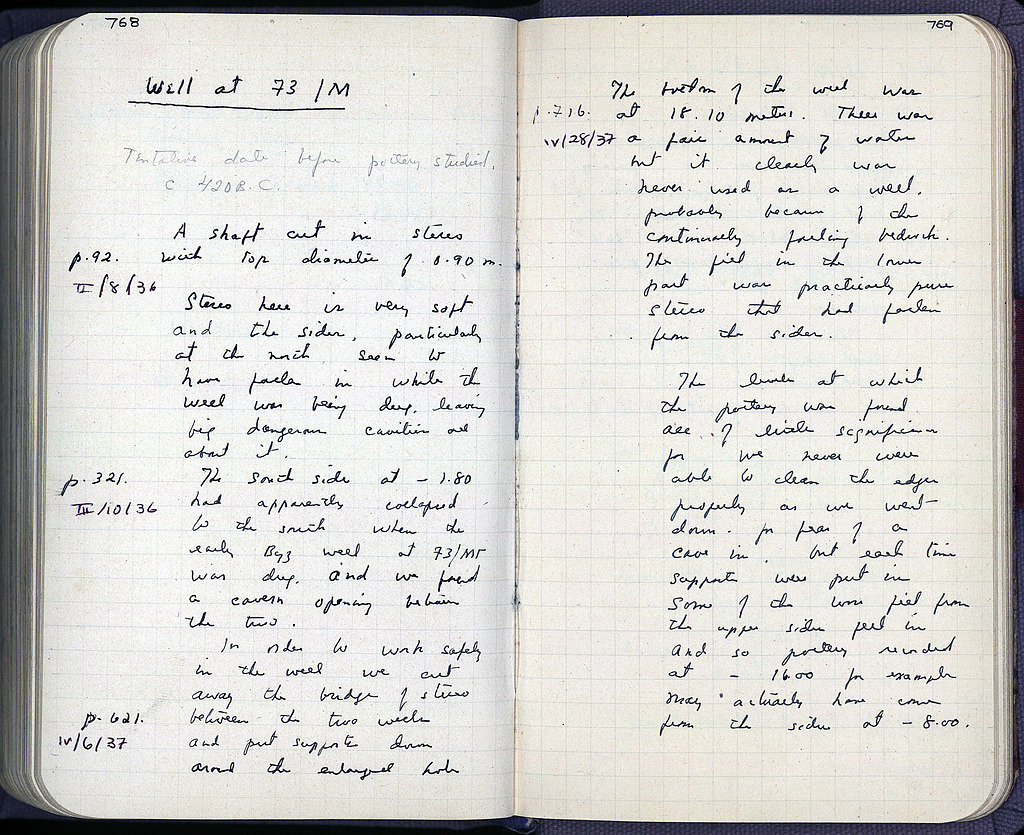 768
Well at 73/M
Tentative date before pottery studied.
c 420 B.C.
A shaft cut in stereo
p.92. with top diameter of 0.90 m.
II/8/36
Stereo here is very soft
and the sides, particularly
at the north seem to
have fallen in while the
well was being dug, leaving
big dangerous cavities all
about it.
p. 321. The south side at - 1.80
III/10/36 had apparently collapsed
to the south when the
early Byz well at 73/
was dug. And we found
a cavern opening between
the two.
In order to work safely
in the well we cut
away the bridge of stereo
p. 621. between the two wells
IV/6/37 and put supports down
around the enlarged hole
769
The bottom of the well was
p.716. at 18.10 meters. There was
IV/28/37 a fair amount of water
but it clearly was
never used as a well,
probably because of the
continually falling bedrock.
The fill in the lower
part was practically pure
stereo that had fallen
from the sides.
The levels at which
the pottery was found
are of little significance
for we never were
able to clean the edges
properly as we went
down. for fear of a
cave in, but each time
supports were put in
some of the loose fill from
the upper sides fell in
and so pottery recorded
at - 16.00 for example
may actually have come
from the sides at - 8.00.